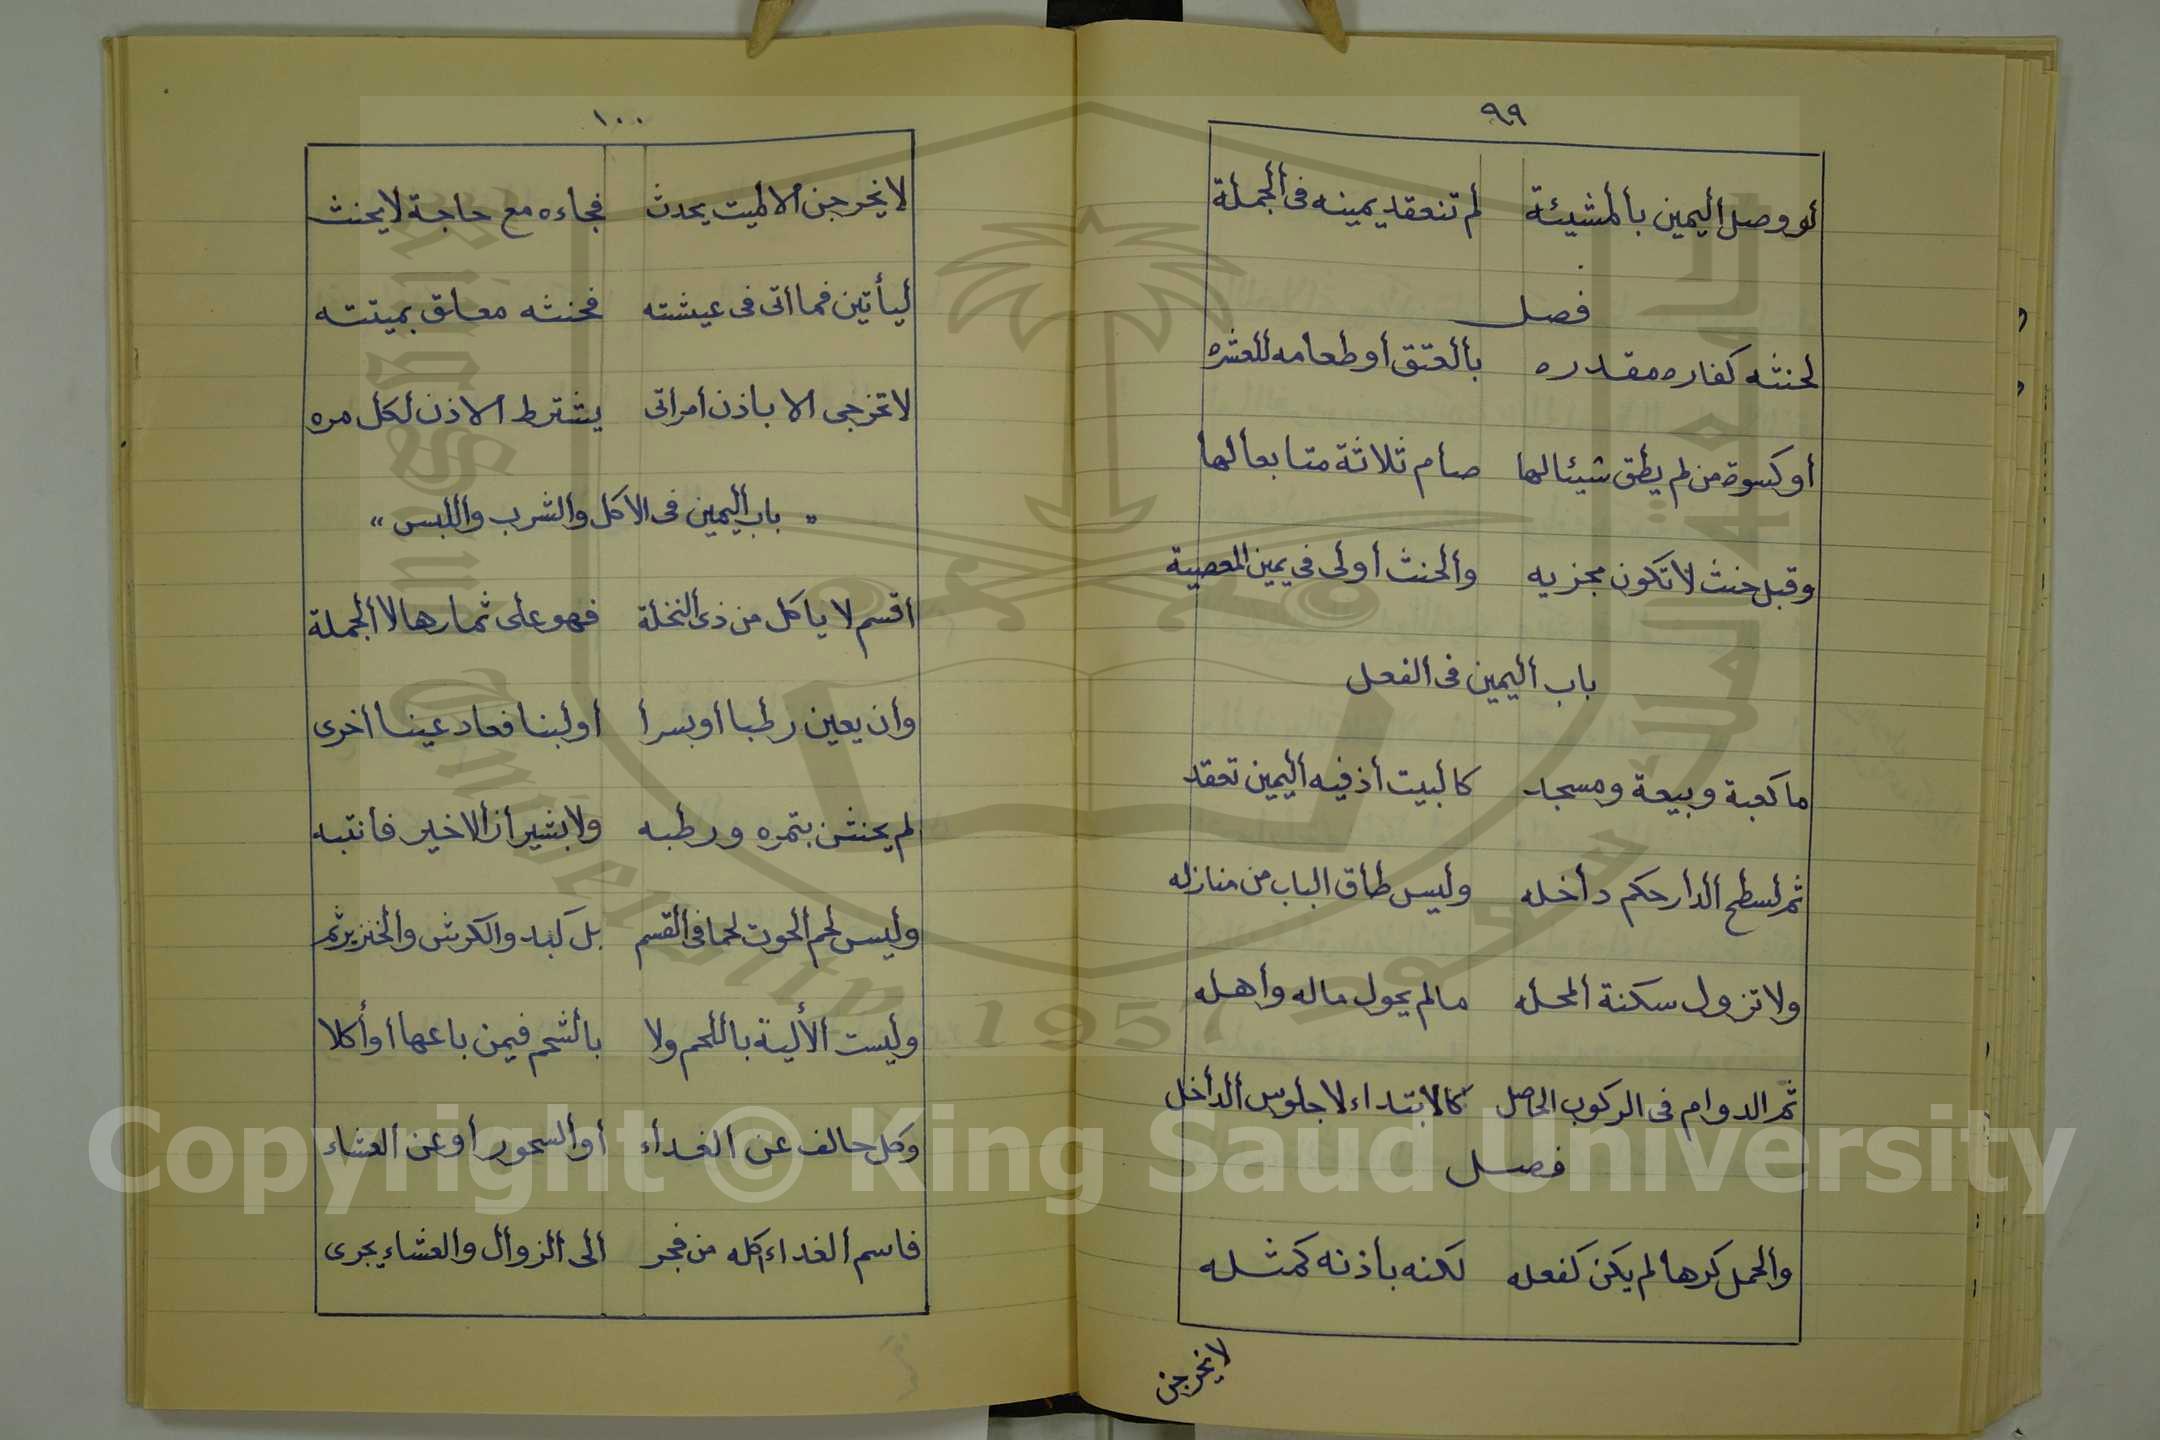 ٩٩
لو وصل اليمين بالمشيئة لم تنعقد يمينه في الجملة
فصل
لحنثه كفاره مقدره بالعتق أو طعامه للعشره
أو كسوة من لم يطق شيئا لها صام ثلاثة متابعا لها
وقبل حنث لا تكون مجزيه والحنث أولى في يمين المعصية
باب اليمين في الفعل
ما كعبة وبيعة ومسجد كالبيت أذ فيه اليمين تعقد
ثم لسطح الدار حكم داخله وليس طاق الباب من منازله
ولا تزول سكنة المحله مالم يحول ماله وأهله
ثم الدوام في الركوب الحاصل كالابتداء لا جلوس الداخل
فصل
والحمل كرها لم يكن كفعله لكنه بأذنه كمثله
لا يخرجن
١٠٠
لا يخرجن الا لميت يحدث فجاءه مع حاجة لا يحنث
ليأتين فما أتى في عيشته فحنثه معلق بميتته
لا تخرجي الا باذن أمرأتى يشترط الاذن لكل مره
" باب اليمين في الاكل والشرب واللبس "
اقسم لا ياكل من ذي النخلة فهو على ثمارها لا الجملة
وان يعين رطبا أو بسرا أو لبنا فعاد عينا أخرى
لم يحنثن بتمره ورطبه ولا بشيراز الاخير فانتبه
وليس لحم الحوت لحما في القسم بل كبد والكرش والخنزير ثم
وليست الألية باللحم ولا بالشحم فيمن باعها أو أكلا
وكل حالف عن الغداء أو السحور أو عن العشاء
فاسم الغداء اكله من فجر الى الزوال والعشاء يجرى
King Saud University
1957
Copyright © King Saud University